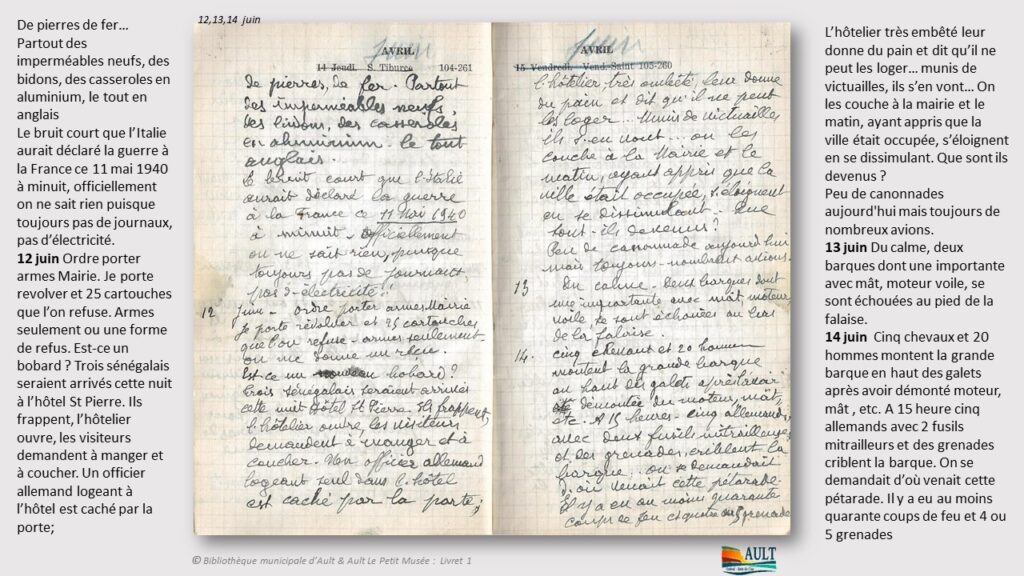 12,13,14 juin
De pierres de fer…
Partout des
imperméables neufs, des
bidons, des casseroles en
aluminium, le tout en
anglais
Le bruit court que l’Italie
aurait déclaré la guerre à
la France ce 11 mai 1940
à minuit, officiellement
on ne sait rien puisque
toujours pas de journaux,
pas d’électricité.
12 juin Ordre porter
armes Mairie. Je porte
revolver et 25 cartouches
que l’on refuse. Armes
seulement ou une forme
de refus. Est-ce un
bobard ? Trois sénégalais
seraient arrivés cette nuit
à l’hôtel St Pierre. Ils
frappent, l’hôtelier
ouvre, les visiteurs
demandent à manger et
à coucher. Un officier
allemand logeant à
l’hôtel est caché par la
porte;
Juin
AVRIL
14 Jeudi. S. Tiburce 104-261
de pierres, de fer. Partout
des imperméables neufs,
des bidons, des casseroles
en aluminium. le tout
anglais.
le bruit court que l'Italie
aurait déclaré la guerre
à la France ce 11 Mai 1940
à minuit. Officiellement
on ne sait rien, puisque
toujours pas de journaux,
pas d'électricité !!
12 Juin - Ordre porter armes Mairie
Je porte révolver et 25 cartouches
que l'on refuse - armes seulement
on me donne un reçu.
Est-ce un bobard ?
Trois sénégalais seraient arrivés
cette nuit Hôtel St Pierre. Ils frappent,
l'hôtelier ouvre, les visiteurs
demandent à manger et à
coucher. Un officier allemand
logeant seul dans l'hôtel
est caché par la porte;
Juin
AVRIL
15 Vendredi. Vend.-Saint 105-260
l'hôtelier, très embêté, leur donne
du pain et dit qu'il ne peut
les loger... Munis de victuailles
ils s'en vont... on les
couche à la Mairie et le
matin, ayant appris que la
ville était occupée, s'éloignent
en se dissimulant. Que
sont-ils devenus ?
Peu de canonnade aujourd'hui
mais toujours nombreux avions.
13 Du calme. Deux barques dont
une importante avec mât, moteur
voile se sont échouées au bas
de la falaise.
14. cinq chevaux et 20 hommes
montent la grande barque
en haut des galets après l'avoir
démontée du moteur, mât,
etc. A 15 heures - cinq allemands
avec deux fusils mitrailleurs
et des grenades, criblent la
barque... on se demandait
d'où venait cette pétarade.
Il y a eu au moins quarante
coups de feu et quatre ou 5 grenades
L’hôtelier très embêté leur
donne du pain et dit qu’il ne
peut les loger… munis de
victuailles, ils s’en vont… On
les couche à la mairie et le
matin, ayant appris que la
ville était occupée, s’éloignent
en se dissimulant. Que sont ils
devenus ?
Peu de canonnades
aujourd'hui mais toujours de
nombreux avions.
13 juin Du calme, deux
barques dont une importante
avec mât, moteur voile, se
sont échouées au pied de la
falaise.
14 juin Cinq chevaux et 20
hommes montent la grande
barque en haut des galets
après avoir démonté moteur,
mât , etc. A 15 heure cinq
allemands avec 2 fusils
mitrailleurs et des grenades
criblent la barque. On se
demandait d’où venait cette
pétarade. Il y a eu au moins
quarante coups de feu et 4 ou
5 grenades
© Bibliothèque municipale d’Ault & Ault Le Petit Musée : Livret 1
AULT